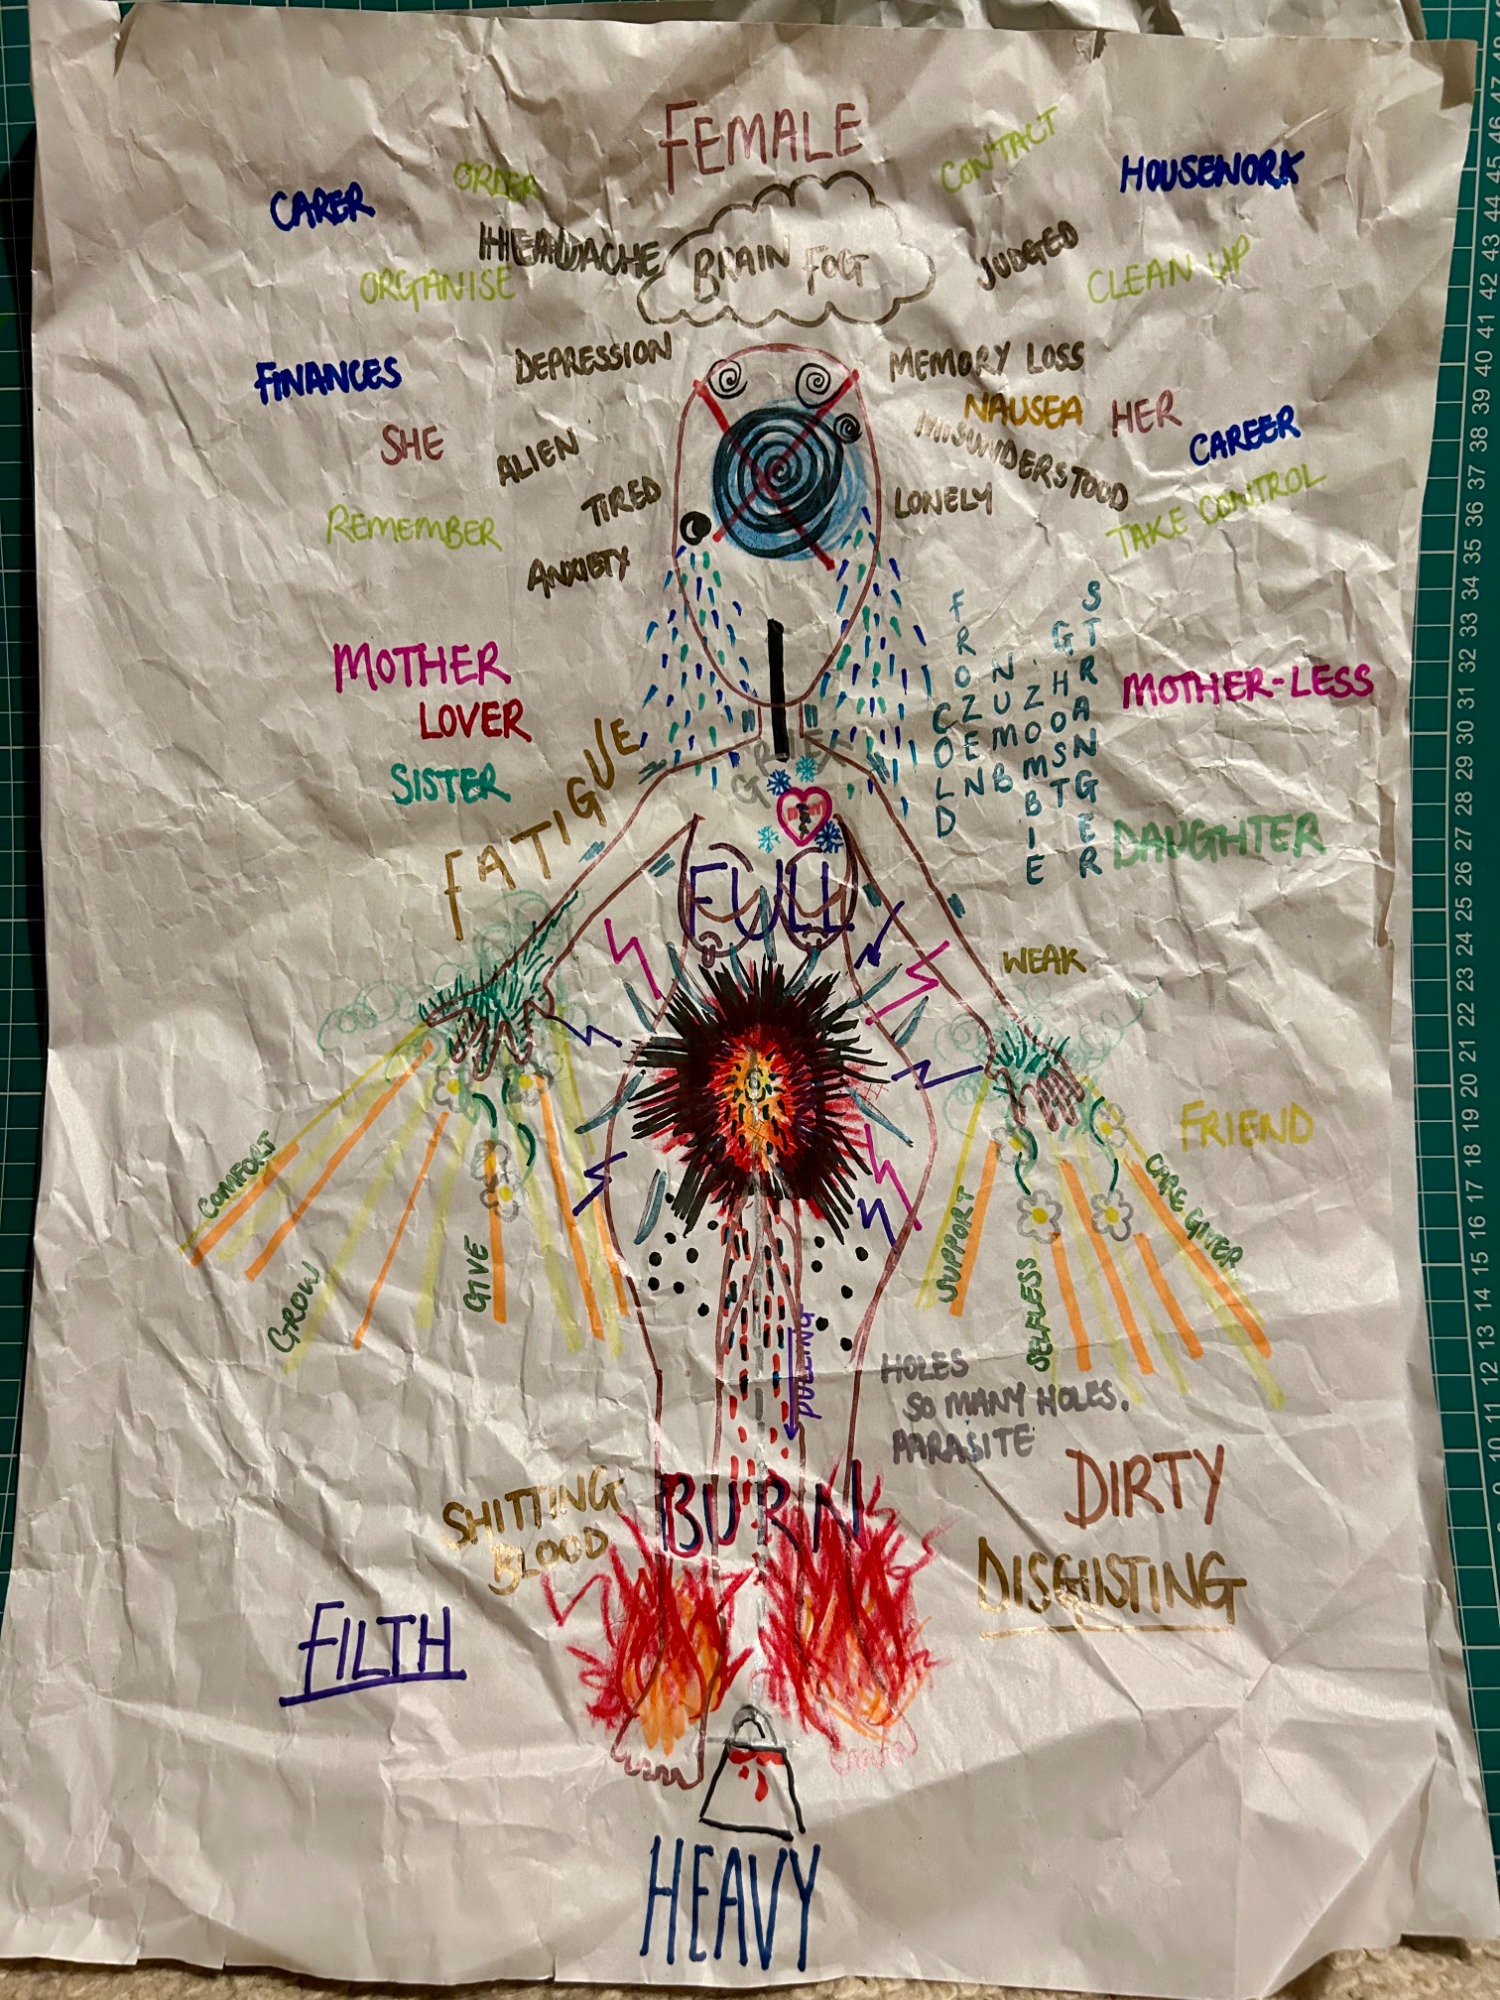 FEMALE
CONTACT
ORDER
HOUSEWORK
CARER
HEADACHE
BRAIN FOG
JUDGED
ORGANISE
CLEAN UP
DEPRESSION
MEMORY LOSS
FINANCES
NAUSEA
HER
SHE
CAREER
MISUNDERSTOOD
ALIEN
TIRED
LONELY
TAKE CONTROL
REMEMBER
ANXIETY
COLD
FROZEN
NUMB
ZOMBIE
GHOST
STRANGER
MOTHER
MOTHER-LESS
LOVER
SISTER
FATIGUE
GRIEF
DAUGHTER
FULL
WEAK
FRIEND
COMFORT
GROW
GIVE
SUPPORT
SELFLESS
CARE GIVER
PULLING
HOLES
SO MANY HOLES.
PARASITE
DIRTY
SHITTING
BLOOD
BURN
DISGUSTING
FILTH
HEAVY
9 10 11 12 13 14 15 16 17 18 19 20 21 22 23 24 25 26 27 28 29 30 31 32 33 34 35 36 37 38 39 40 41 42 43 44 45 46 47